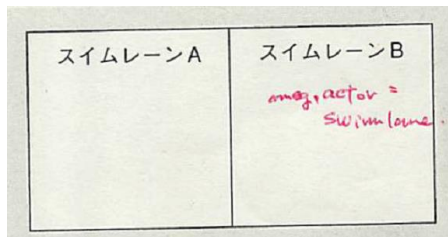 スイムレーンA
スイムレーンB
actor =
swimlane.